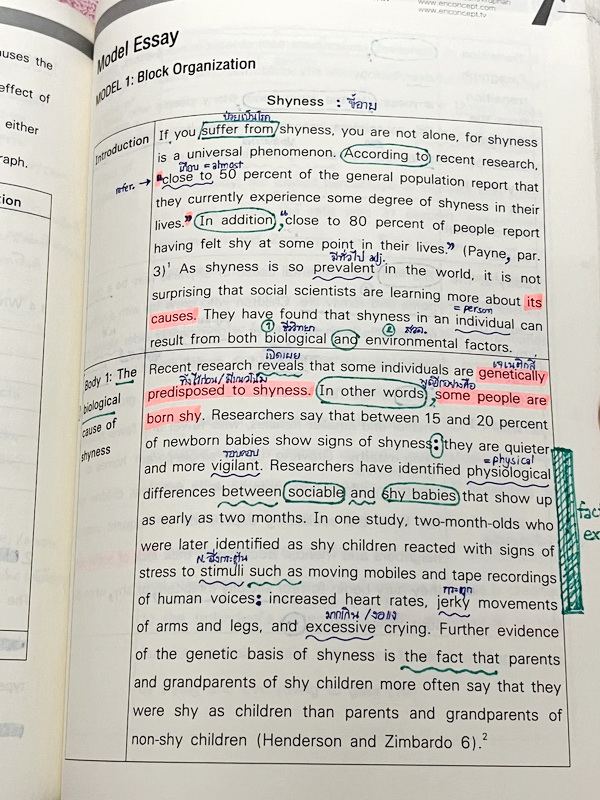 www.enconcept.tv
Model Essay
MODEL 1: Block Organization
Shyness : ขี้อาย
Introduction
ป่วยเป็นโรค
If you suffer from shyness, you are not alone, for shyness
is a universal phenomenon. According to recent research,
เกือบ = almost
refer. → "close to 50 percent of the general population report that
they currently experience some degree of shyness in their
lives." In addition, "close to 80 percent of people report
having felt shy at some point in their lives." (Payne, par.
มีทั่วไป adj.
3)¹ As shyness is so prevalent in the world, it is not
surprising that social scientists are learning more about its
= person
causes. They have found that shyness in an individual can
① ชีววิทยา ② สวล.
result from both biological and environmental factors.
Body 1: The
biological
cause of
shyness
เปิดเผย
Recent research reveals that some individuals are genetically
predisposed to shyness. In other words, some people are
born shy. Researchers say that between 15 and 20 percent
of newborn babies show signs of shyness: they are quieter
รอบคอบ = physical
and more vigilant. Researchers have identified physiological
differences between sociable and shy babies that show up
as early as two months. In one study, two-month-olds who
were later identified as shy children reacted with signs of
N. สิ่งกระตุ้น
stress to stimuli such as moving mobiles and tape recordings
กระตุก
of human voices: increased heart rates, jerky movements
of arms and legs, and excessive crying. Further evidence
of the genetic basis of shyness is the fact that parents
and grandparents of shy children more often say that they
were shy as children than parents and grandparents of
non-shy children (Henderson and Zimbardo 6).²
uses the
effect of
either
raph.
ion